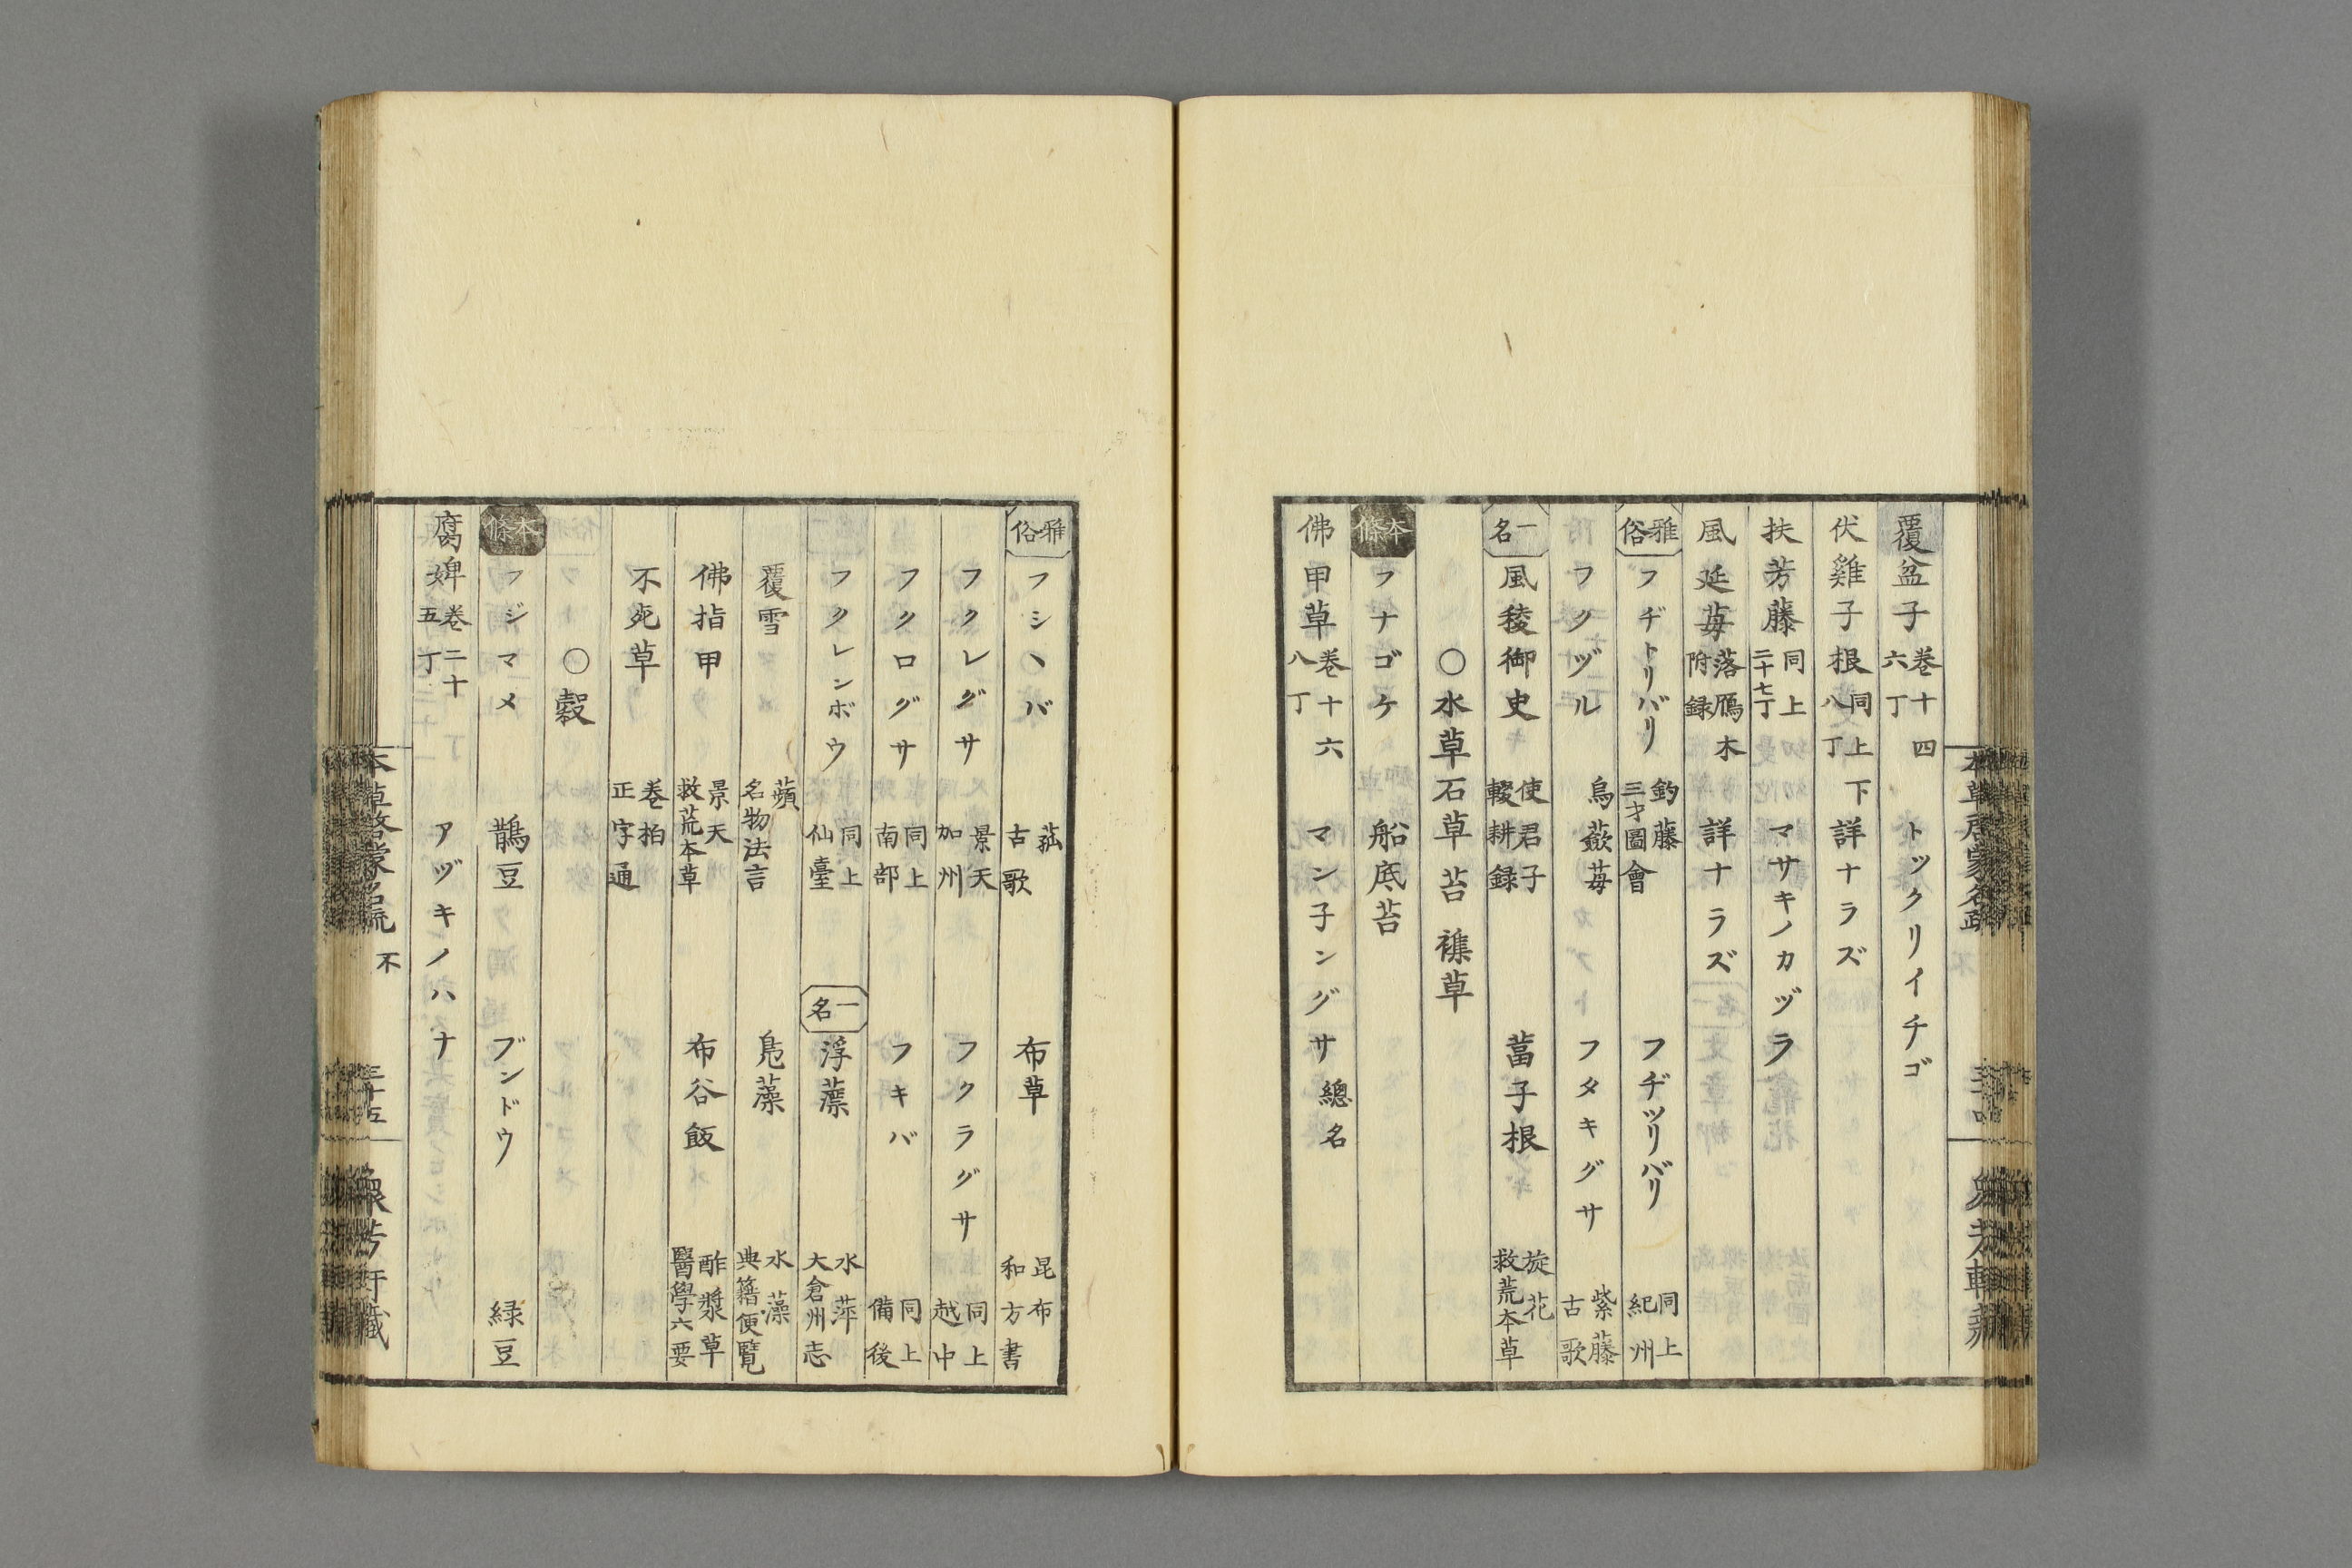 覆盆子 卷十四 六丁 トックリイチゴ
伏雞子根 同上 八丁 下詳ナラズ
扶芳藤 同上 二十七丁 マサキノカヅラ
風延苺 落鴈木 附録 詳ナラズ
雅俗 フヂトリバリ 釣藤 三才圖會 フヂツリバリ 同上 紀州
フクヅル 烏蘞苺 フタキグサ 紫藤 古歌
一名 風稜御史 使君子 輟耕録 葍子根 旋花 救荒本草
○水草 石草 苔 襍草
本條 フナゴケ 船底苔
佛甲草 卷十六 八丁 マン子ングサ 總名
雅俗 フシヽバ 菰 古歌 布草 昆布 和方書
フクレグサ 景天 加州 フクラグサ 同上 越中
フクログサ 同上 南部 フキバ 同上 備後
フクレンボウ 同上 仙臺 一名 浮薸 水萍 大倉州志
覆雪 蘋 名物法言 鳧藻 水藻 典籍便覧
佛指甲 景天 救荒本草 布谷飯 酢漿草 醫學六要
不死草 卷柏 正字通
○穀
本條 フジマメ 鵲豆 ブンドウ 緑豆
腐婢 卷二十五 丁 アヅキノハナ
本草啓蒙名疏 不 三十五